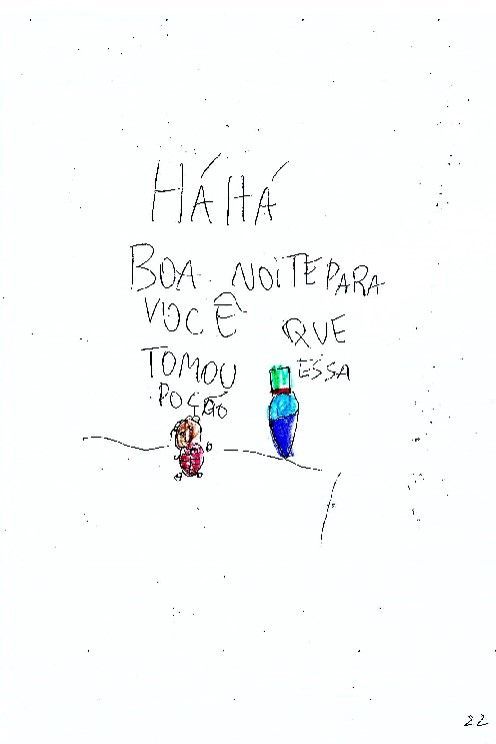 HÁ HÁ
BOA NOITE PARA
VOCÊ QUE
TOMOU ESSA
POÇÃO
22